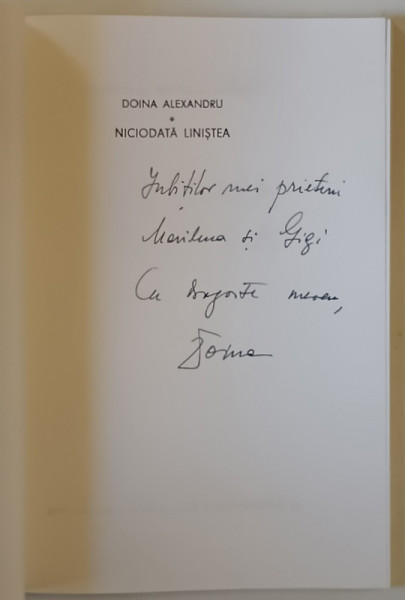 DOINA ALEXANDRU
•
NICIODATĂ LINIȘTEA
Iubiților mei prieteni
Marilena și Gigi
Cu dragoste mereu,
Doina